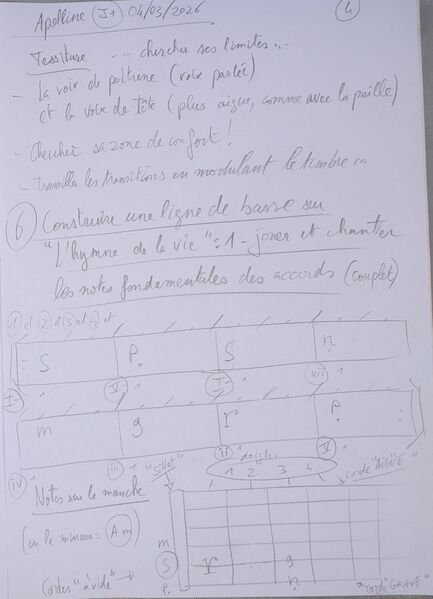 Apolline J1 04/03/2026
4
Tessiture --- chercher ses limites...
- La voix de poitrine (voix parlée)
et la voix de tête (plus aigue, comme avec la paille)
- Chercher sa zone de confort!
- Travailler les transitions en modulant le timbre
6 Construire une ligne de basse sur
"L'hymne de la vie": 1 - jouer et chanter
les notes fondamentales des accords (couplet)
1 et 2 et 3 et 4 et
: S P. S n
I- V- I- vii
m g r P. :
iv iii ii V
"sillet" doigts
1 2 3 4
corde "AIGÜE"
Notes sur le manche
(en la mineur = Am)
m
S r g
Cordes "à vide" → P. n
"corde" GRAVE